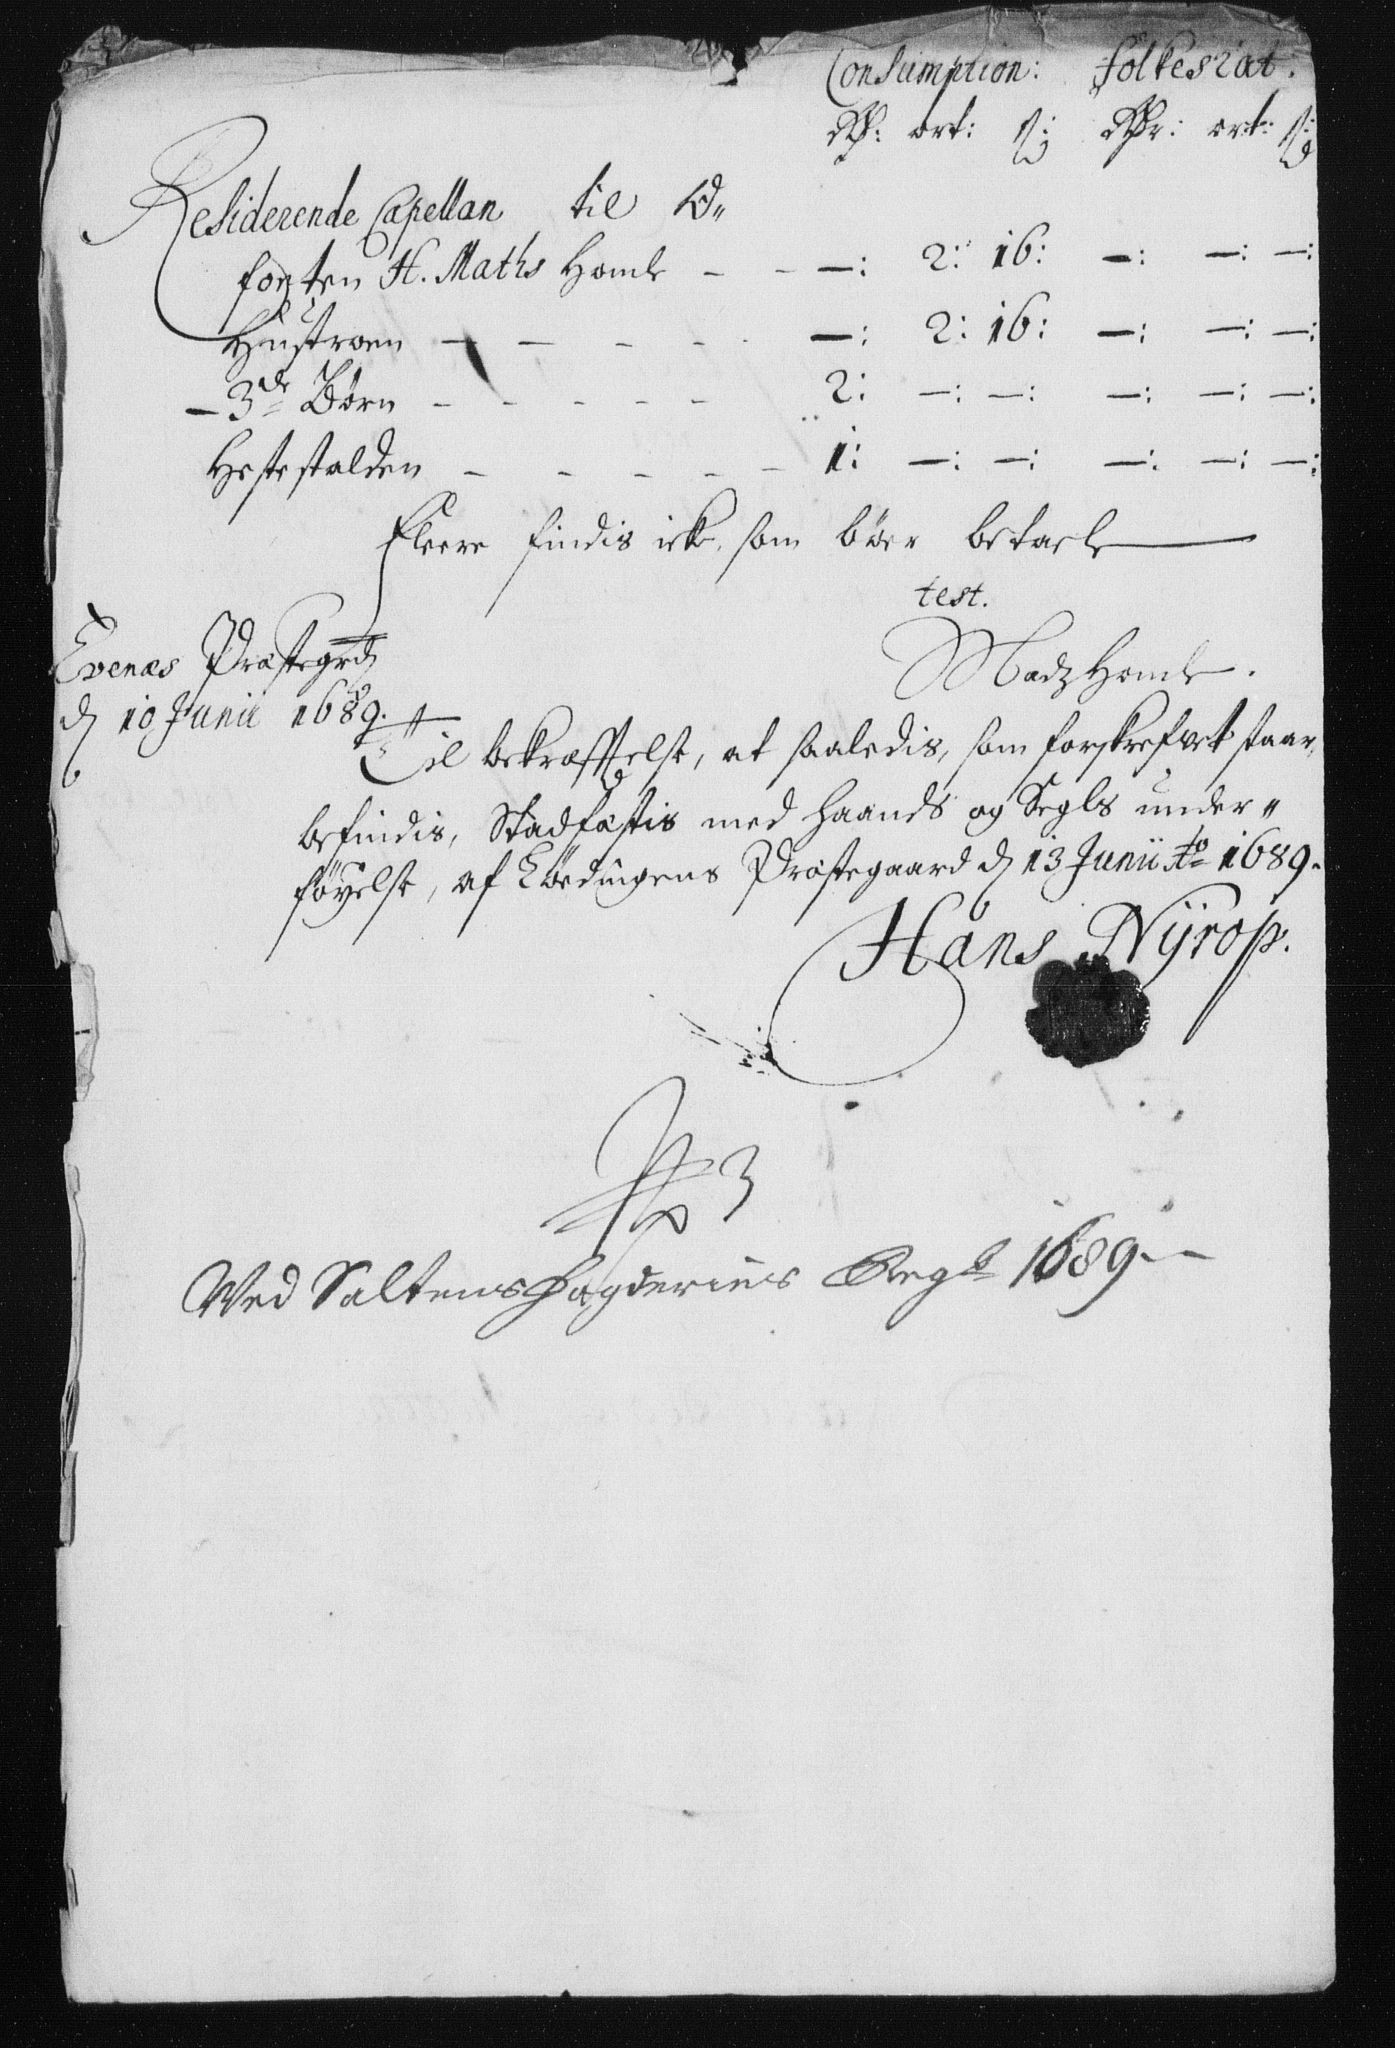 Consumption: folkeskat:
Rdr: ort: ß: Rdr: ort: ß:
Residerende Capellan til O„
foeten H. Maths Homle - - —: 2: 16: —: —: —:
Hustroen - - - - - —: 2: 16: —: —: —:
- 3de Børn - - - - - 2: —: —: —: —: —:
Hestestalden - - - - - 1: —: —: —: —: —:
Fleere findis icke, som bör betale
test.
Evenæs Præstegrd
d 10 Junii 1689.
Madz Homle.
Til bekræfftelse, at saaledis, som forskrefvet staar,
befindis, Stadfæstis med haands og Segls under„
føyelse, af Löedingens Præstegaard d 13 Junii Ao 1689.
Hans Nyrop.
3
Ved Saltens fogderies Regsk 1689.